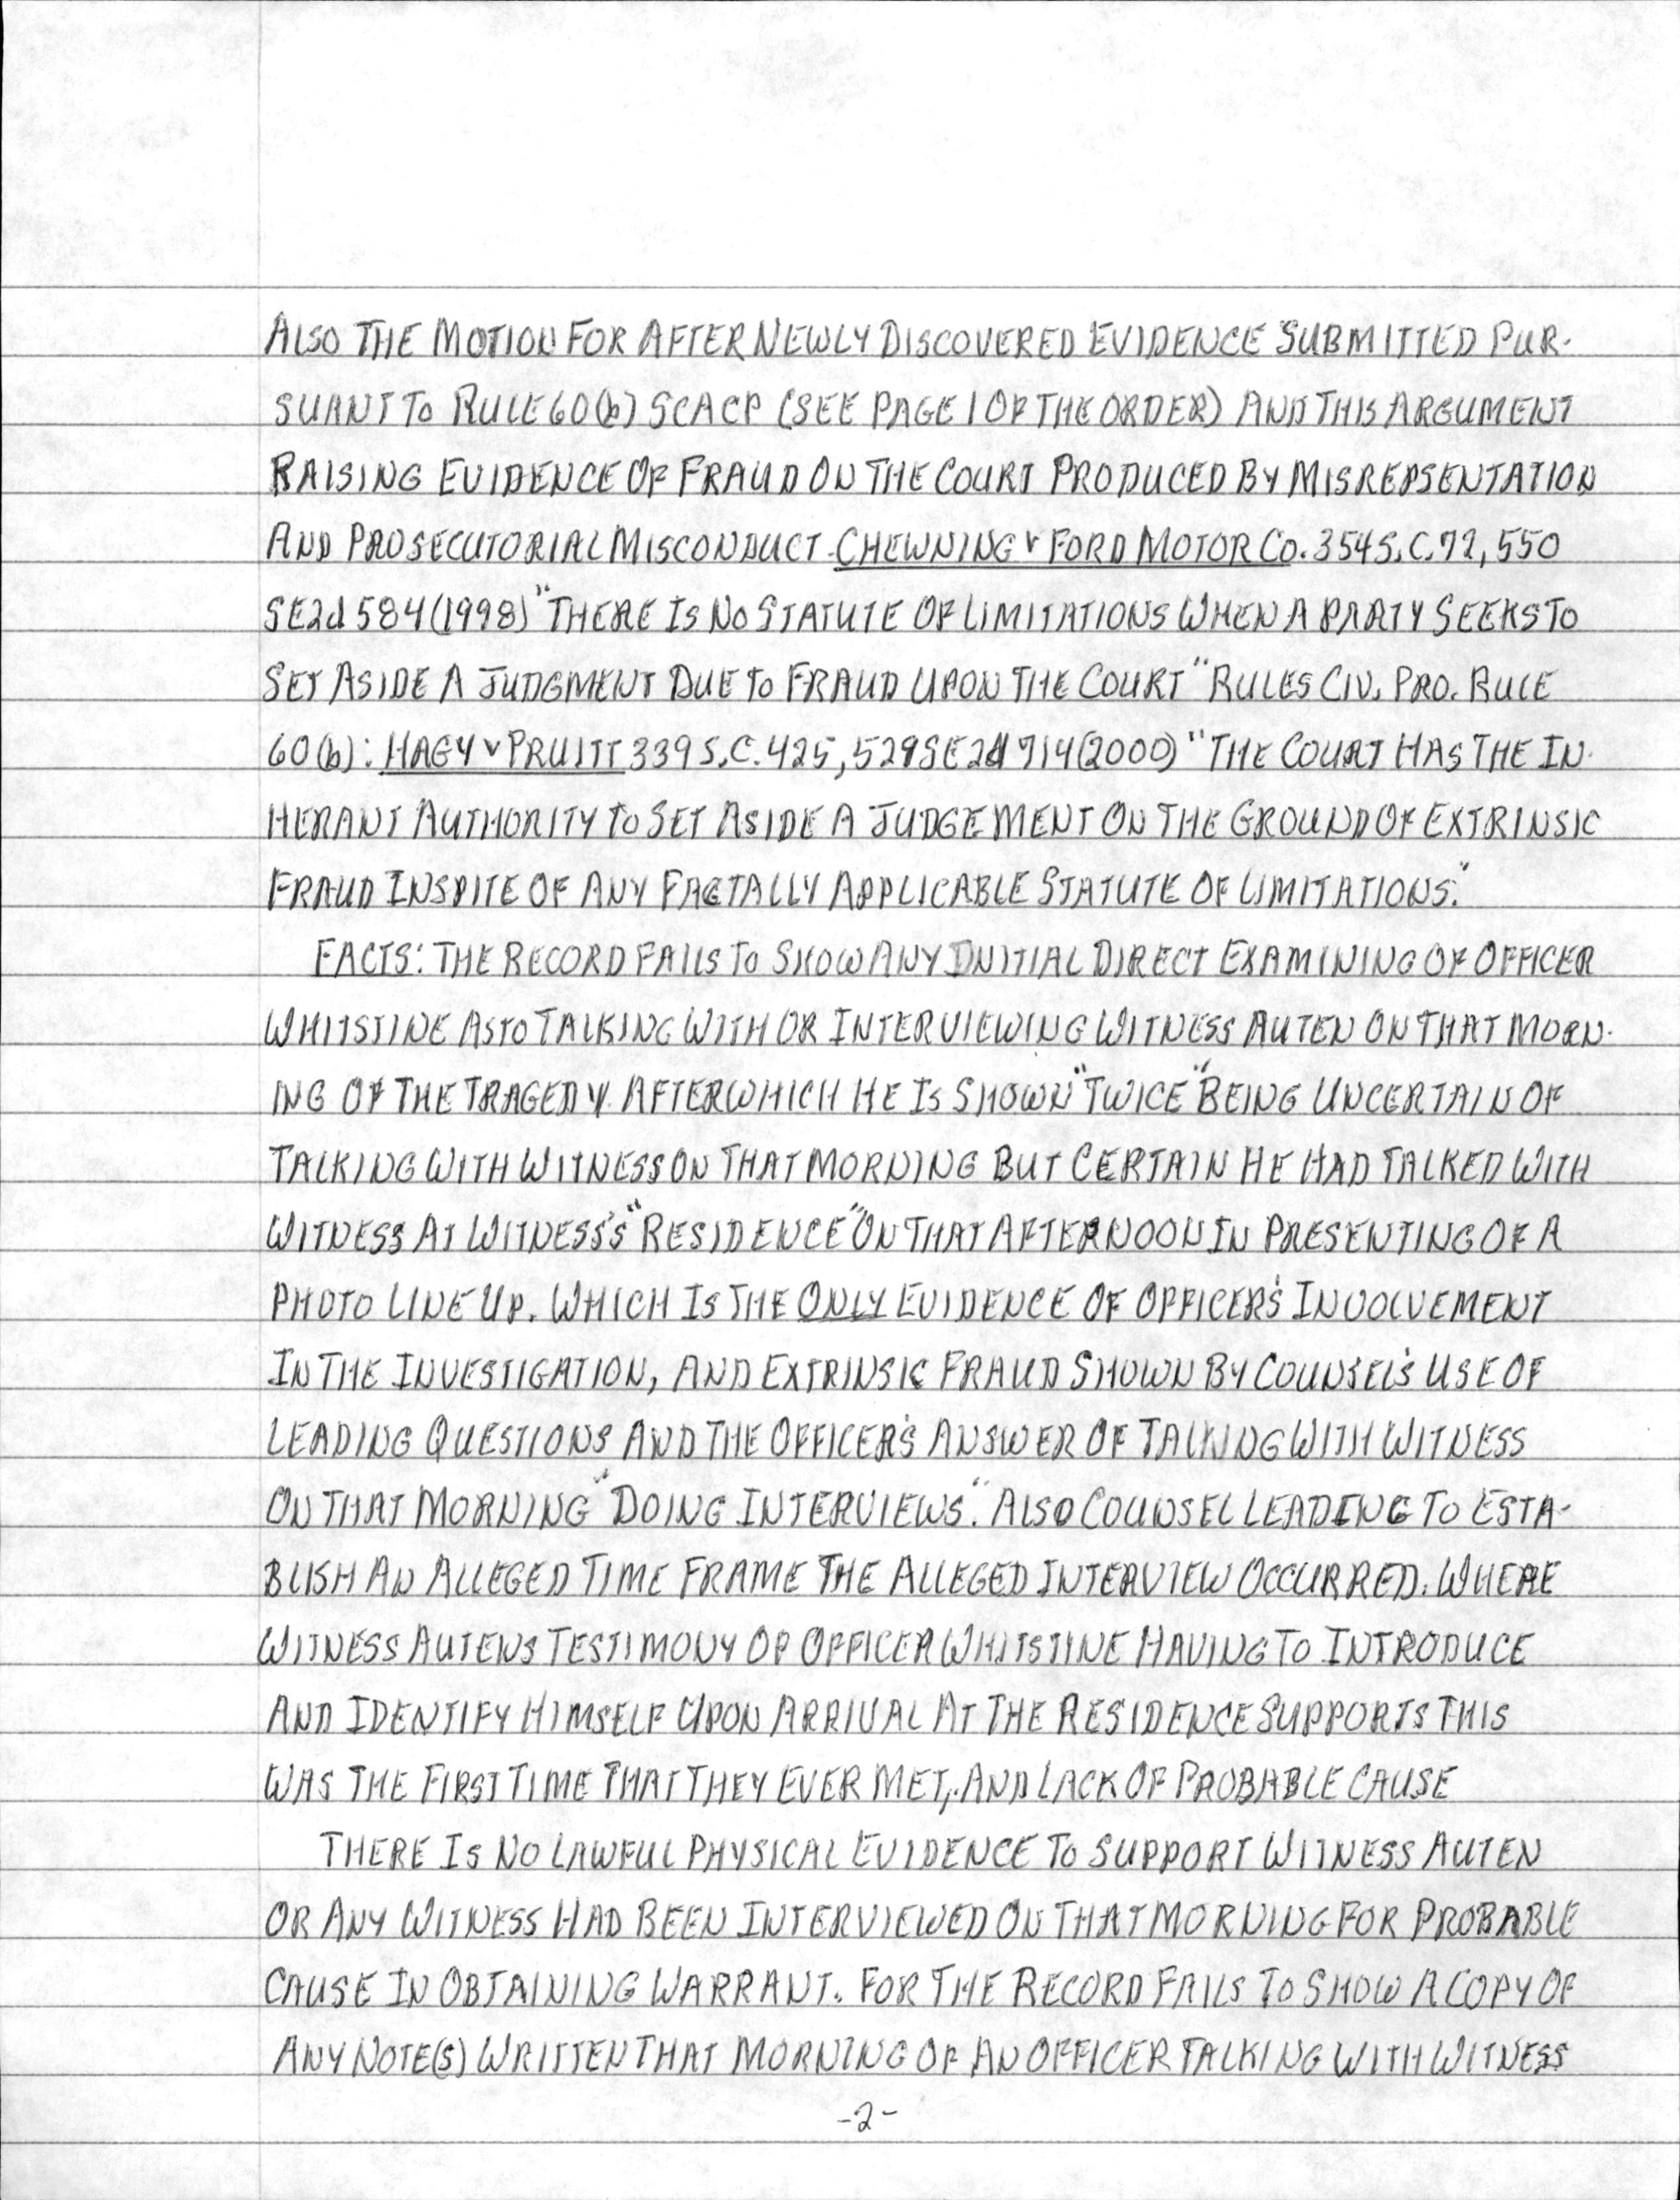 ALSO THE MOTION FOR AFTER NEWLY DISCOVERED EVIDENCE SUBMITTED PUR-
SUANT TO RULE 60(b) SCACP (SEE PAGE 1 OF THE ORDER) AND THIS ARGUMENT
RAISING EVIDENCE OF FRAUD ON THE COURT PRODUCED BY MISREPSENTATION
AND PROSECUTORIAL MISCONDUCT. CHEWNING v FORD MOTOR CO. 354 S.C. 72, 550
SE2d 584 (1998) "THERE IS NO STATUTE OF LIMITATIONS WHEN A PARTY SEEKS TO
SET ASIDE A JUDGMENT DUE TO FRAUD UPON THE COURT" RULES CIV. PRO. RULE
60(b): HAGY v PRUITT 339 S.C. 425, 529 SE2d 714 (2000) "THE COURT HAS THE IN-
HERANT AUTHORITY TO SET ASIDE A JUDGEMENT ON THE GROUND OF EXTRINSIC
FRAUD INSPITE OF ANY FACTALLY APPLICABLE STATUTE OF LIMITATIONS."
FACTS: THE RECORD FAILS TO SHOW ANY INITIAL DIRECT EXAMINING OF OFFICER
WHITSTINE AS TO TALKING WITH OR INTERVIEWING WITNESS AUTEN ON THAT MORN-
ING OF THE TRAGEDY. AFTERWHICH HE IS SHOWN "TWICE" BEING UNCERTAIN OF
TALKING WITH WITNESS ON THAT MORNING BUT CERTAIN HE HAD TALKED WITH
WITNESS AT WITNESS'S "RESIDENCE" ON THAT AFTERNOON IN PRESENTING OF A
PHOTO LINE UP. WHICH IS THE ONLY EVIDENCE OF OFFICER'S INVOLVEMENT
IN THE INVESTIGATION, AND EXTRINSIC FRAUD SHOWN BY COUNSEL'S USE OF
LEADING QUESTIONS AND THE OFFICER'S ANSWER OF TALKING WITH WITNESS
ON THAT MORNING "DOING INTERVIEWS". ALSO COUNSEL LEADING TO ESTA-
BLISH AN ALLEGED TIME FRAME THE ALLEGED INTERVIEW OCCURRED. WHERE
WITNESS AUTENS TESTIMONY OF OFFICER WHITSTINE HAVING TO INTRODUCE
AND IDENTIFY HIMSELF UPON ARRIVAL AT THE RESIDENCE SUPPORTS THIS
WAS THE FIRST TIME THAT THEY EVER MET, AND LACK OF PROBABLE CAUSE
THERE IS NO LAWFUL PHYSICAL EVIDENCE TO SUPPORT WITNESS AUTEN
OR ANY WITNESS HAD BEEN INTERVIEWED ON THAT MORNING FOR PROBABLE
CAUSE IN OBTAINING WARRANT. FOR THE RECORD FAILS TO SHOW A COPY OF
ANY NOTE(S) WRITTEN THAT MORNING OF AN OFFICER TALKING WITH WITNESS
-2-